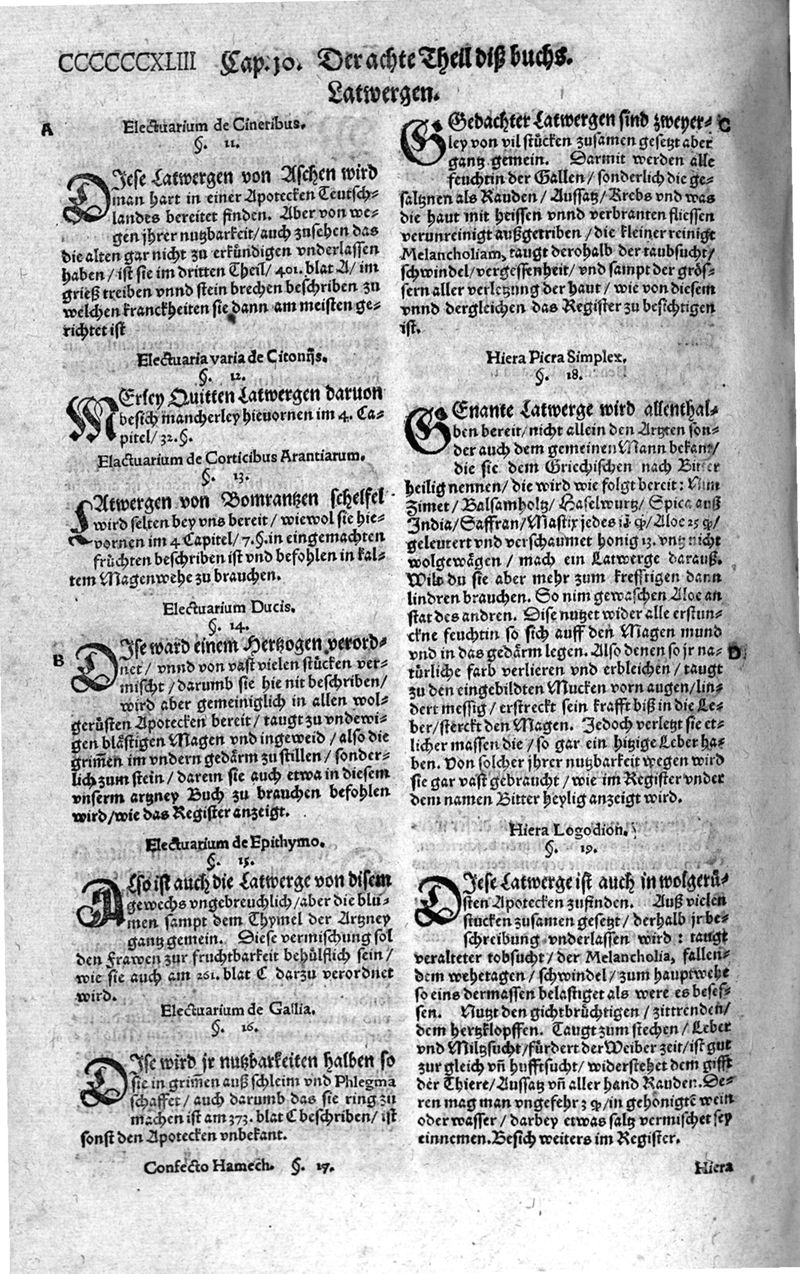 CCCCCCXLIII Cap. 10. Der achte Theil diß buchs.
Latwergen.
A
Electuarium de Cineribus.
§. 11.
DIese Latwergen von Aschen wird
man hart in einer Apotecken Teutsch-
landes bereitet finden. Aber von we-
gen jhrer nutzbarkeit/auch zusehen das
die alten gar nicht zu erkündigen vnderlassen
haben/ist sie im dritten Theil/401. blat A/im
grieß treiben vnnd stein brechen beschriben zu
welchen kranckheiten sie dann am meisten ge-
richtet ist
Electuaria varia de Citonijs.
§. 12.
MErley Quitten Latwergen daruon
besich mancherley hieuornen im 4. Ca-
pitel/32.§.
Elactuarium de Corticibus Arantiarum.
§. 13.
LAtwergen von Bomrantzen schelfel
wird selten bey vns bereit/wiewol sie hie-
vornen im 4 Capitel/7.§.in eingemachten
früchten beschriben ist vnd befohlen in kal-
tem Magenwehe zu brauchen.
Electuarium Ducis.
§. 14.
B
DIse ward einem Hertzogen verord-
net/vnnd von vast vielen stücken ver-
mischt/darumb sie hie nit beschriben/
wird aber gemeiniglich in allen wol-
gerüsten Apotecken bereit/taugt zu vndewi-
gen blästigen Magen vnd ingeweid/also die
grimen im vndern gedärm zu stillen/sonder-
lich zum stein/darein sie auch etwa in diesem
vnserm artzney Buch zu brauchen befohlen
wird/wie das Register anzeigt.
Electuarium de Epithymo.
§. 15.
ALso ist auch die Latwerge von disem
gewechs vngebreuchlich/aber die blu-
men sampt dem Thymel der Artzney
gantz gemein. Diese vermischung sol
den Frawen zur fruchtbarkeit behülflich sein/
wie sie auch am 261. blat C darzu verordnet
wird.
Electuarium de Gallia.
§. 16.
DIse wird jr nutzbarkeiten halben so
sie in grimen auß schleim vnd Phlegma
schaffet/auch darumb das sie ring zu
machen ist am 373. blat C beschriben/ist
sonst den Apotecken vnbekant.
Confecto Hamech. §. 17.
C
GEdachter Latwergen sind zweyer-
ley von vil stücken zusamen gesetzt aber
gantz gemein. Darmit werden alle
feuchtin der Gallen/sonderlich die ge-
saltznen als Rauden/Aussatz/Krebs vnd was
die haut mit heissen vnnd verbranten fliessen
verunreinigt außgetriben/die kleiner reinigt
Melancholiam, taugt derohalb der taubsucht/
schwindel/vergessenheit/vnd sampt der grös-
sern aller verletzung der haut/wie von diesem
vnnd dergleichen das Register zu besichtigen
ist.
Hiera Picra Simplex.
§. 18.
GEnante Latwerge wird allenthal-
ben bereit/nicht allein den Artzten son-
der auch dem gemeinen Mann bekant/
die sie dem Griechischen nach Bitter
heilig nennen/die wird wie folgt bereit: Nim
Zimet/Balsamholtz/Haselwurtz/Spica auß
India/Saffran/Mastix jedes Aloe 25
geleutert vnd verschaumet honig 12. vntz nicht
wolgewägen/mach ein Latwerge darauß.
Wilt du sie aber mehr zum krefftigen dann
lindren brauchen. So nim gewaschen Aloe an
stat des andren. Dise nutzet wider alle erstun-
ckne feuchtin so sich auff den Magen mund
vnd in das gedärm legen. Also denen so jr na-
D
türliche farb verlieren vnd erbleichen/taugt
zu den eingebildten Mucken vorn augen/lin-
dert messig/erstreckt sein krafft biß in die Le-
ber/sterckt den Magen. Jedoch verletzt sie et-
licher massen die/so gar ein hitzige Leber ha-
ben. Von solcher jhrer nutzbarkeit wegen wird
sie gar vast gebraucht/wie im Register vnder
dem namen Bitter heylig anzeigt wird.
Hiera Logodion.
§. 19.
DIese Latwerge ist auch in wolgerü-
sten Apotecken zufinden. Auß vielen
stucken zusamen gesetzt/derhalb jr be-
schreibung vnderlassen wird: taugt
veralteter tobsucht/der Melancholia, fallen-
dem wehetagen/schwindel/zum hauptwehe
so eins dermassen belastiget als were es beses-
sen. Nutzt den gichtbrüchtigen/zittrenden/
dem hertzklopffen. Taugt zum stechen/Leber
vnd Miltzsucht/fürdert der Weiber zeit/ist gut
zur gleich vñ hufftsucht/widerstehet dem gifft
der Thiere/Aussatz vñ aller hand Rauden. De-
ren mag man vngefehr 3 /in gehönigtē wein
oder wasser/darbey etwas saltz vermischet sey
einnemen. Besich weiters im Register.
Hiera